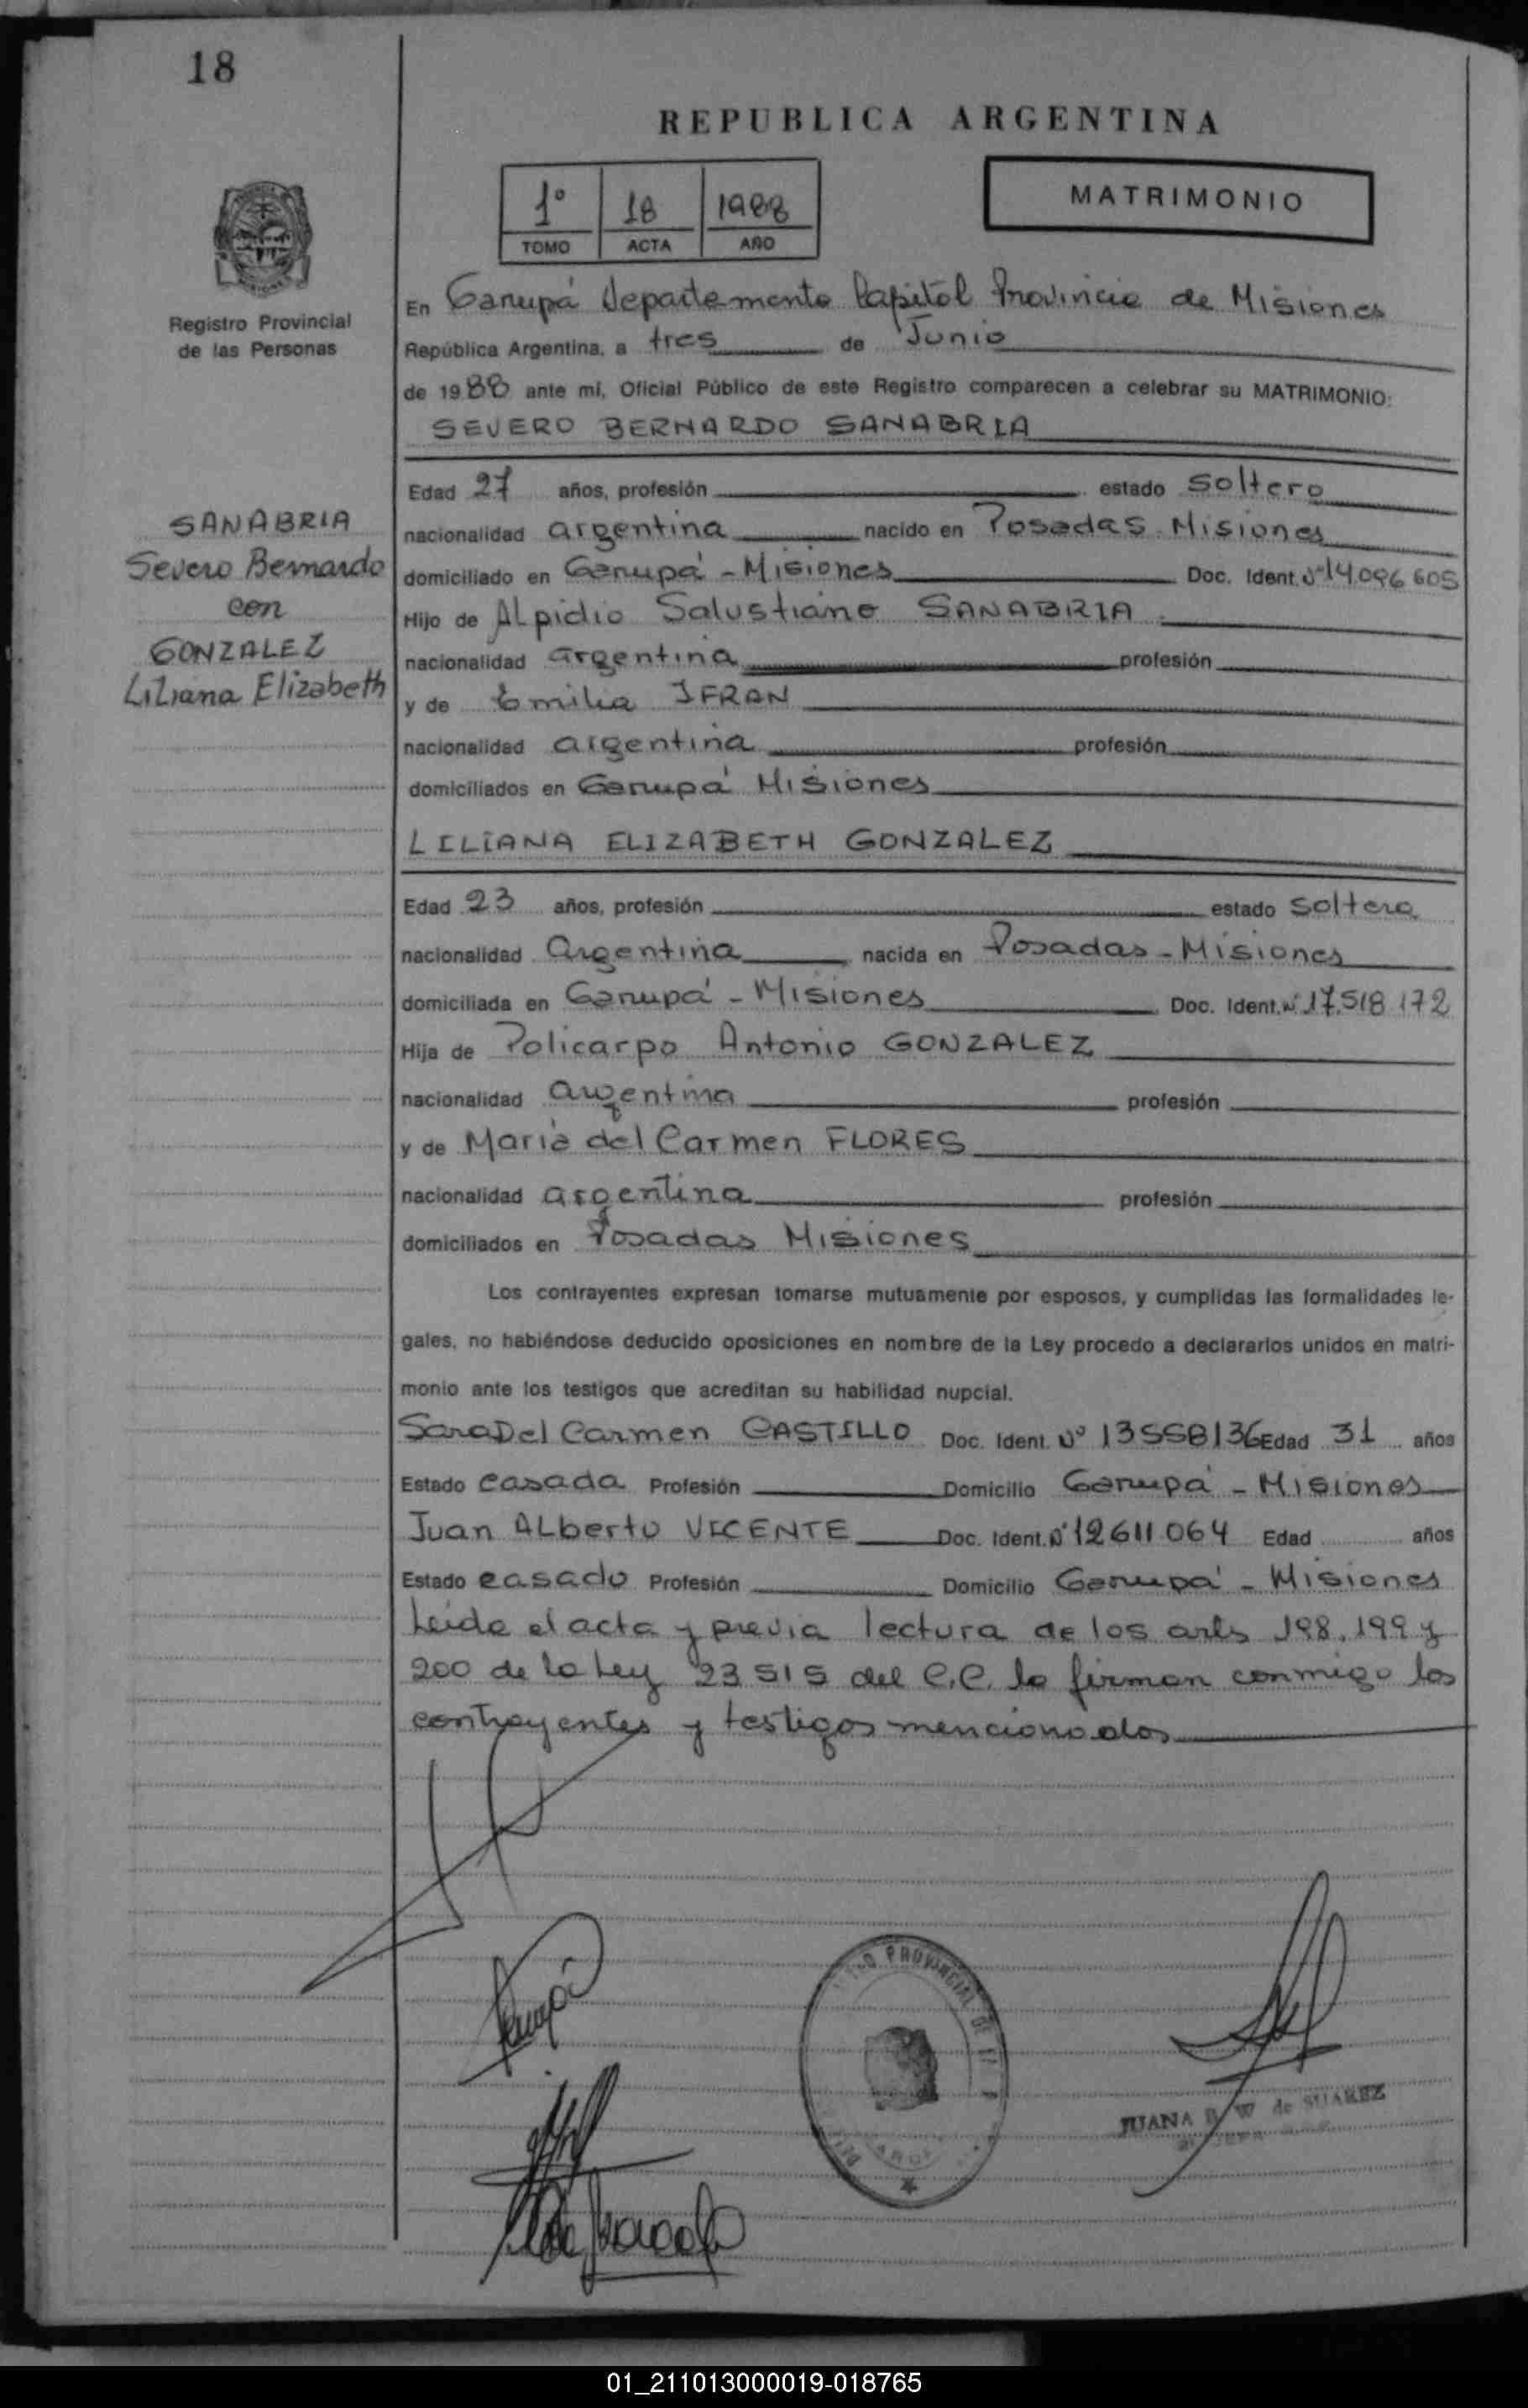 18
REPUBLICA ARGENTINA
1º 18 1988
TOMO ACTA AÑO
MATRIMONIO
Registro Provincial
de las Personas
En Garupá Departamento Capital Provincia de Misiones
República Argentina, a tres de Junio
de 1988 ante mí, Oficial Público de este Registro comparecen a celebrar su MATRIMONIO:
SEVERO BERNARDO SANABRIA
SANABRIA
Severo Bernardo
con
GONZALEZ
Liliana Elizabeth
Edad 27 años, profesión estado Soltero
nacionalidad argentina nacido en Posadas Misiones
domiciliado en Garupá - Misiones Doc. Ident. Nº 14.096 605
Hijo de Alpidio Salustiano SANABRIA
nacionalidad argentina profesión
y de Emilia IFRAN
nacionalidad argentina profesión
domiciliados en Garupá Misiones
LILIANA ELIZABETH GONZALEZ
Edad 23 años, profesión estado Soltera
nacionalidad Argentina nacida en Posadas - Misiones
domiciliada en Garupá - Misiones Doc. Ident. Nº 17.518 172
Hija de Policarpo Antonio GONZALEZ
nacionalidad argentina profesión
y de Maria del Carmen FLORES
nacionalidad argentina profesión
domiciliados en Posadas Misiones
Los contrayentes expresan tomarse mutuamente por esposos, y cumplidas las formalidades le-
gales, no habiéndose deducido oposiciones en nombre de la Ley procedo a declararlos unidos en matri-
monio ante los testigos que acreditan su habilidad nupcial.
Sara Del Carmen CASTILLO Doc. Ident. Nº 13558136 Edad 31 años
Estado casada Profesión Domicilio Garupá - Misiones
Juan Alberto VICENTE Doc. Ident. Nº 12611064 Edad años
Estado casado Profesión Domicilio Garupá - Misiones
Leida el acta y previa lectura de los arts 198, 199 y
200 de la Ley 23 515 del C.C. la firman conmigo los
contrayentes y testigos mencionados
PROVINCIAL DE
JUANA de SUAREZ
01_211013000019-018765